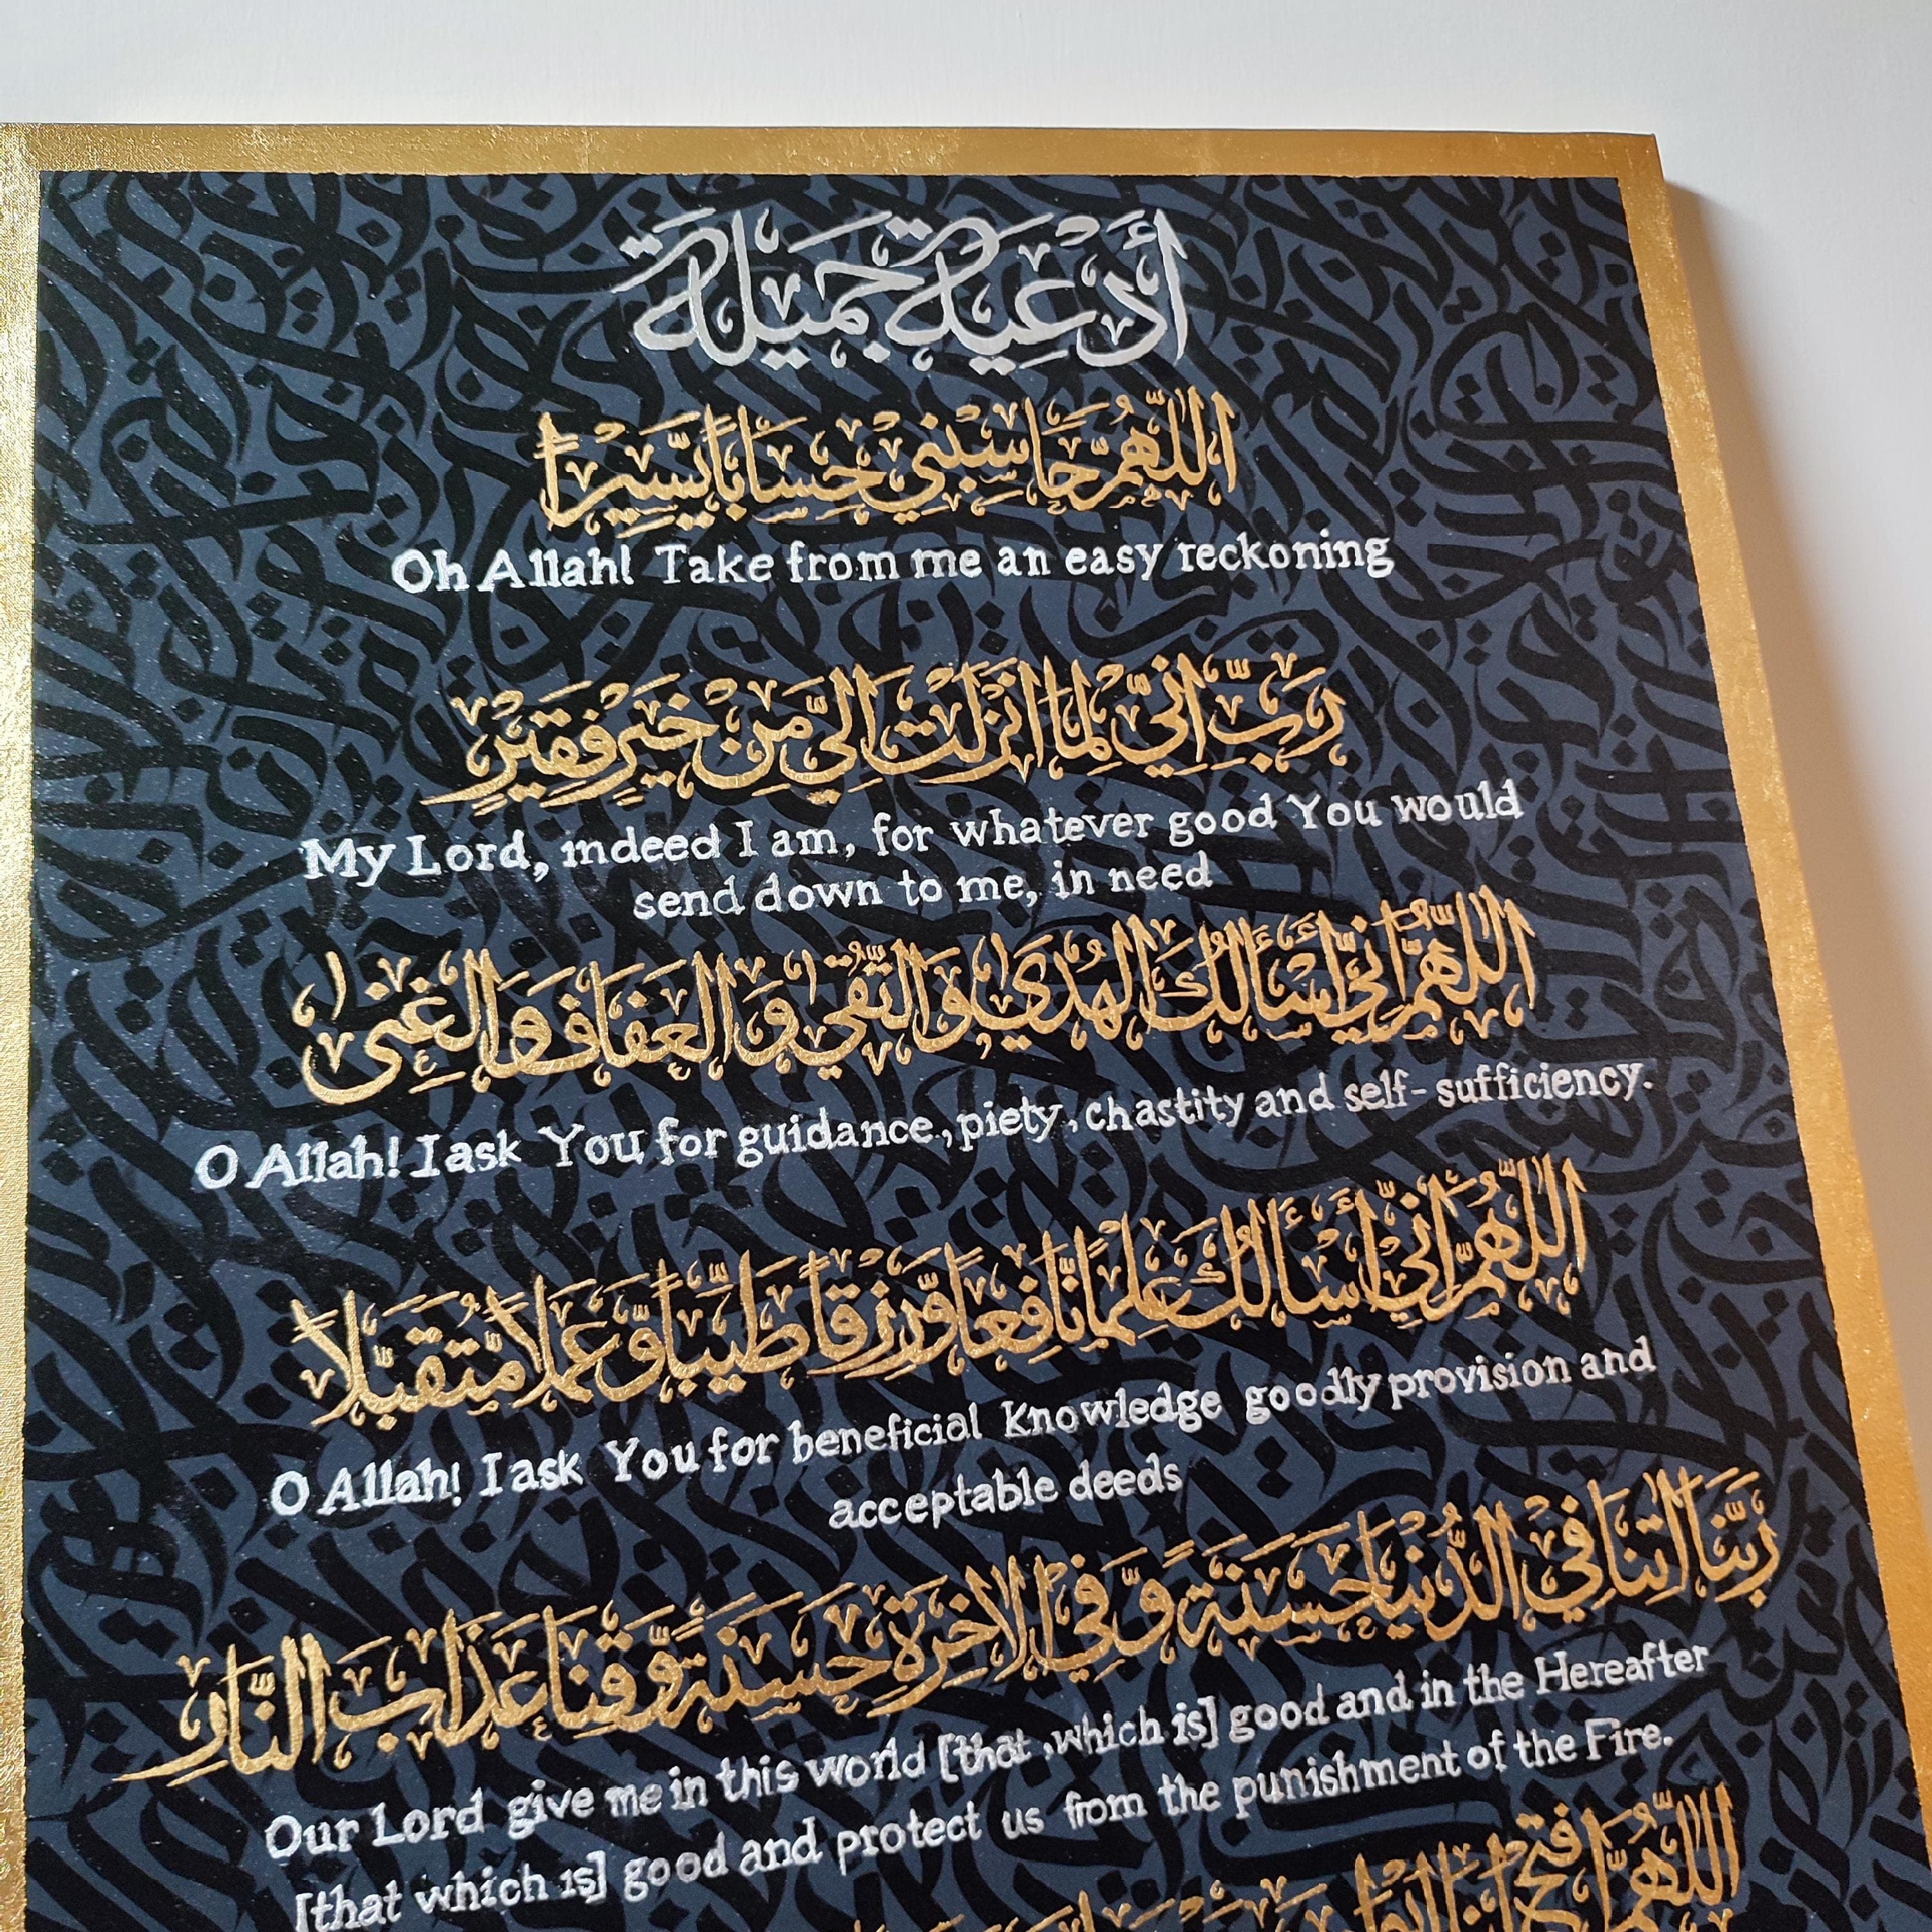 أَدْعِيَة جَمِيلَة
اللّٰهُمَّ حَاسِبْنِي حِسَابًا يَّسِيْرًا
Oh Allah! Take from me an easy reckoning
رَبِّ اِنِّي لِمَا اَنْزَلْتَ اِلَيَّ مِنْ خَيْرٍ فَقِيْرٌ
My Lord, indeed I am, for whatever good You would
send down to me, in need
اللّٰهُمَّ اِنِّي أَسْأَلُكَ الْهُدٰى وَالتُّقٰى وَالْعَفَافَ وَالْغِنٰى
O Allah! I ask You for guidance, piety, chastity and self-sufficiency.
اللّٰهُمَّ اِنِّي أَسْأَلُكَ عِلْمًا نَّافِعًا وَّرِزْقًا طَيِّبًا وَّعَمَلًا مُّتَقَبَّلًا
O Allah! I ask You for beneficial Knowledge goodly provision and
acceptable deeds
رَبَّنَا اٰتِنَا فِي الدُّنْيَا حَسَنَةً وَّفِي الْاٰخِرَةِ حَسَنَةً وَّقِنَا عَذَابَ النَّارِ
Our Lord give me in this world [that ,which is] good and in the Hereafter
[that which is] good and protect us from the punishment of the Fire.
اللّٰهُمَّ افْتَحْ